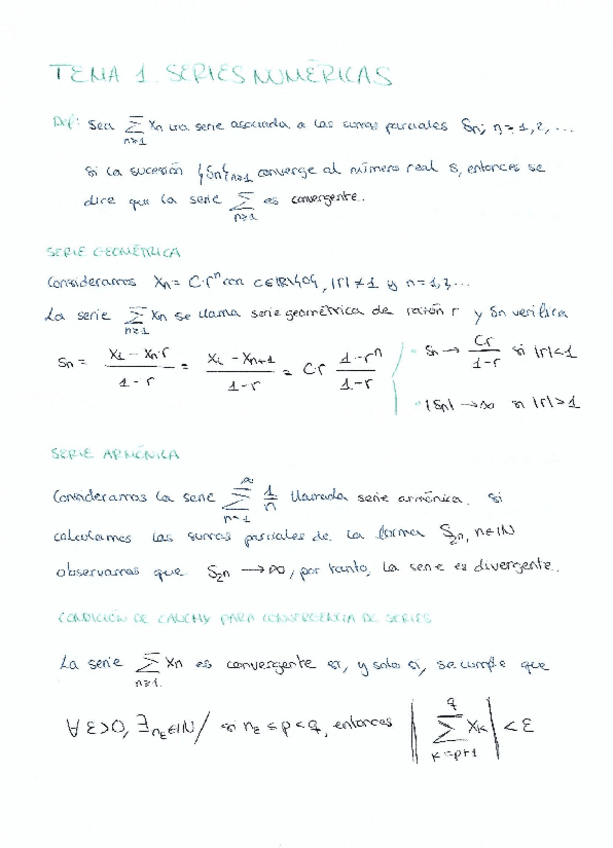 TEMA 1. SERIES NUMÉRICAS
Def: Sea ∑_{n≥1} xn una serie asociada a las sumas parciales Sn; n=1,2,...
si la sucesión {Sn}n≥1 converge al número real s, entonces se
dice que la serie ∑_{n≥1} es convergente.
SERIE GEOMÉTRICA
Consideramos Xn = C·r^n con C∈ℝ\{0}, |r|≠1 y n=1,2,...
La serie ∑_{n≥1} Xn se llama serie geométrica de razón r y Sn verifica
Sn = (x1 - xn·r)/(1-r) = (x1 - xn+1)/(1-r) = Cr (1-r^n)/(1-r)
· Sn → Cr/(1-r) si |r|<1
· |Sn| → ∞ si |r|>1
SERIE ARMÓNICA
Consideramos la serie ∑_{n=1}^{∞} 1/n llamada serie armónica. Si
calculamos las sumas parciales de la forma S2n, n∈ℕ
observamos que S2n → ∞, por tanto, la serie es divergente.
CONDICIÓN DE CAUCHY PARA CONVERGENCIA DE SERIES
La serie ∑_{n≥1} xn es convergente si, y solo si, se cumple que
∀ε>0, ∃nε∈ℕ / si nε ≤ p < q, entonces |∑_{k=p+1}^{q} xk| < ε